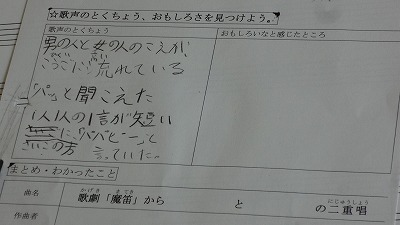 ☆歌声のとくちょう、おもしろさを見つけよう。
歌声のとくちょう
おもしろいなと感じたところ
男の人と女の人のこえが、
こうごに流れている
パッと聞こえた
1人1人の1言が短い
さいごの方
に、パパビーって
言っていた。
まとめ・わかったこと
曲名
歌劇「魔笛」から
かげき
まてき
と
の二重唱
にじゅうしょう
作曲者